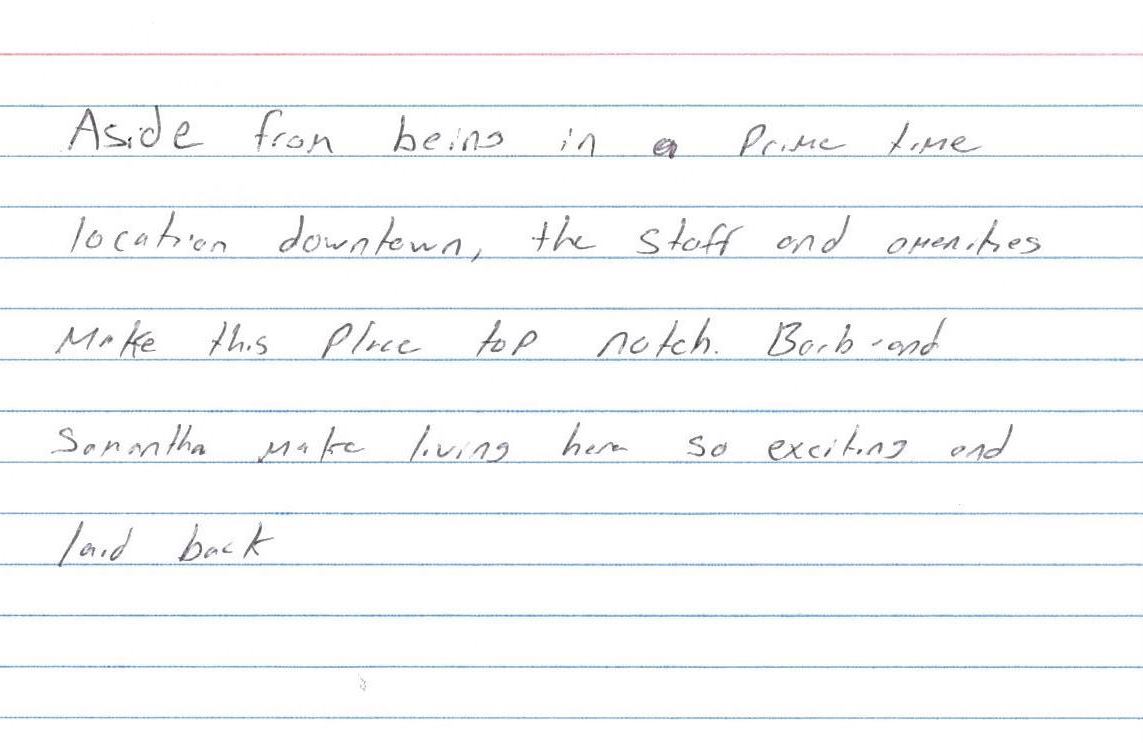 Aside from being in a Prime time
location downtown, the staff and amenities
Make this Place top notch. Barb and
Samantha make living here so exciting and
laid back